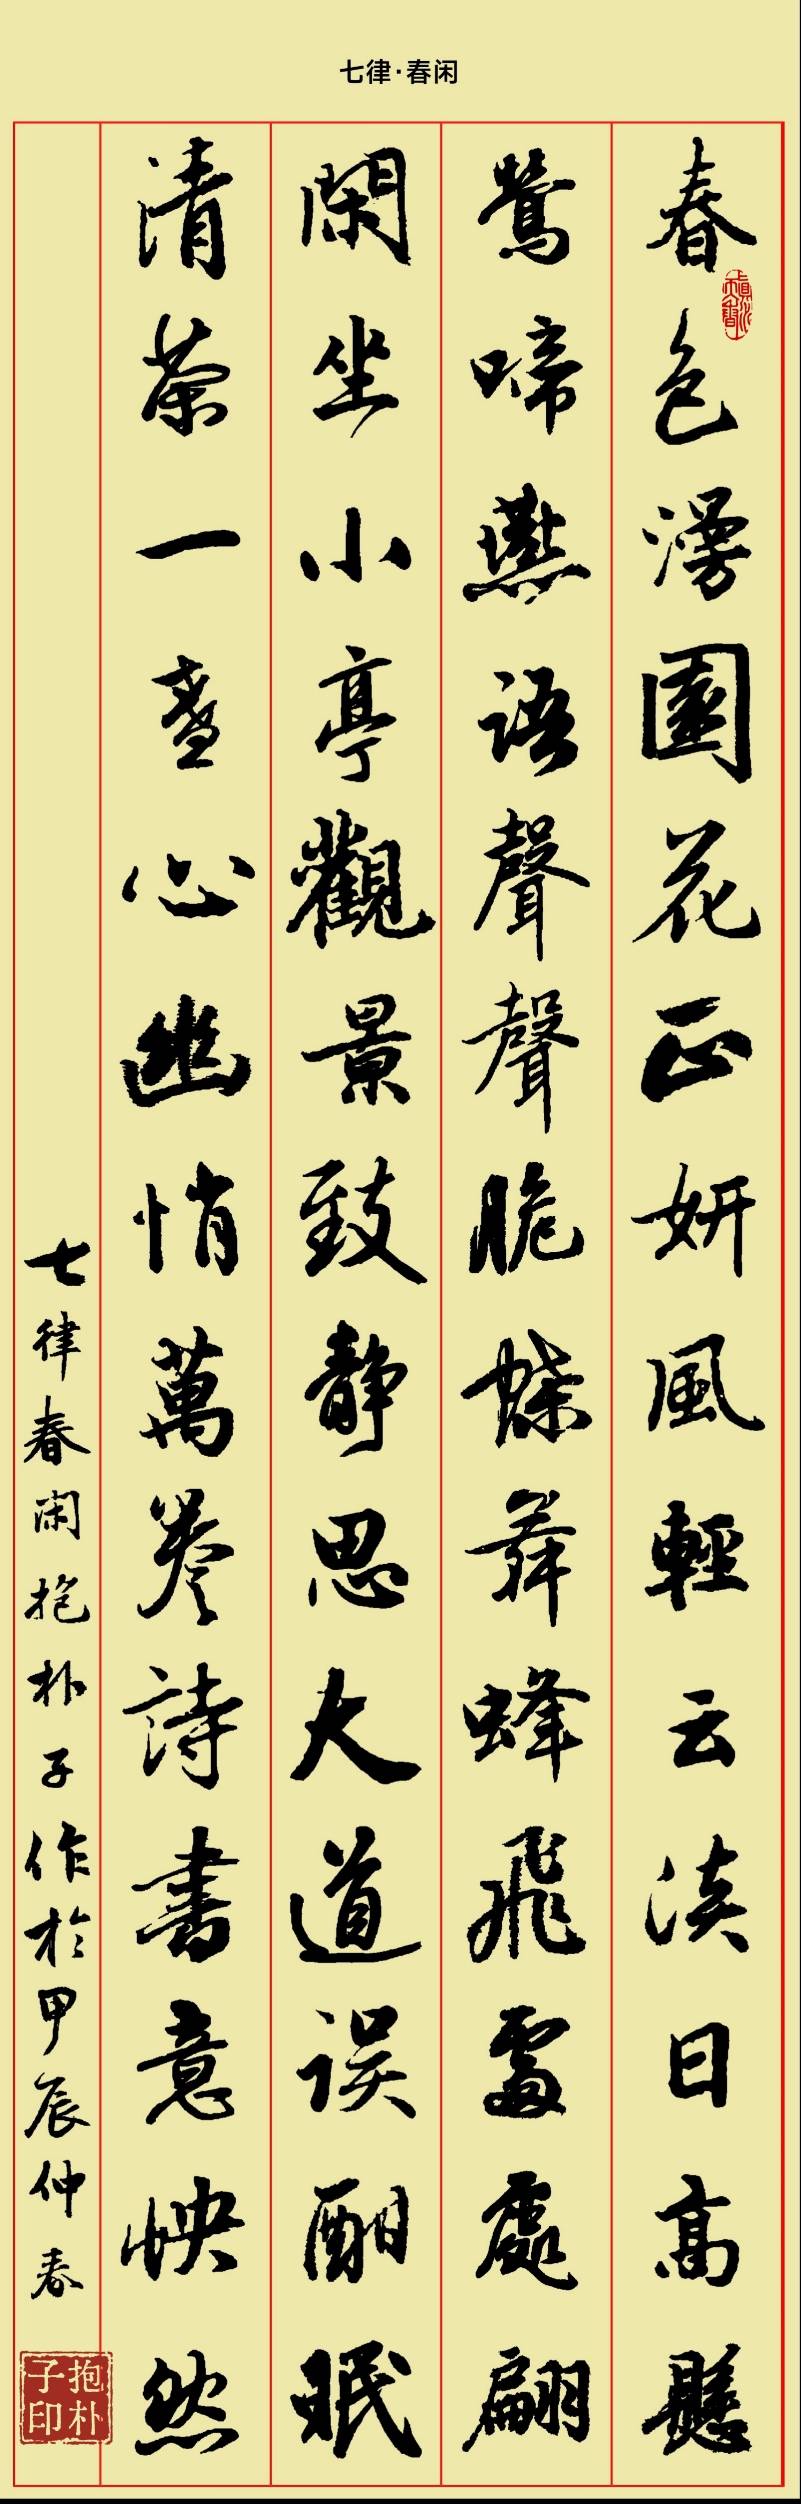 七律·春闲
春色漫園花正妍風輕云淡日高懸
鶯啼燕語聲聲脆蝶舞蜂飛處處翩
閑坐小亭觀景致靜思大道誤酣眠
清茶一盞心幽悄萬卷詩書意快然
七律春闲抱朴子作於甲辰仲春
抱朴子印